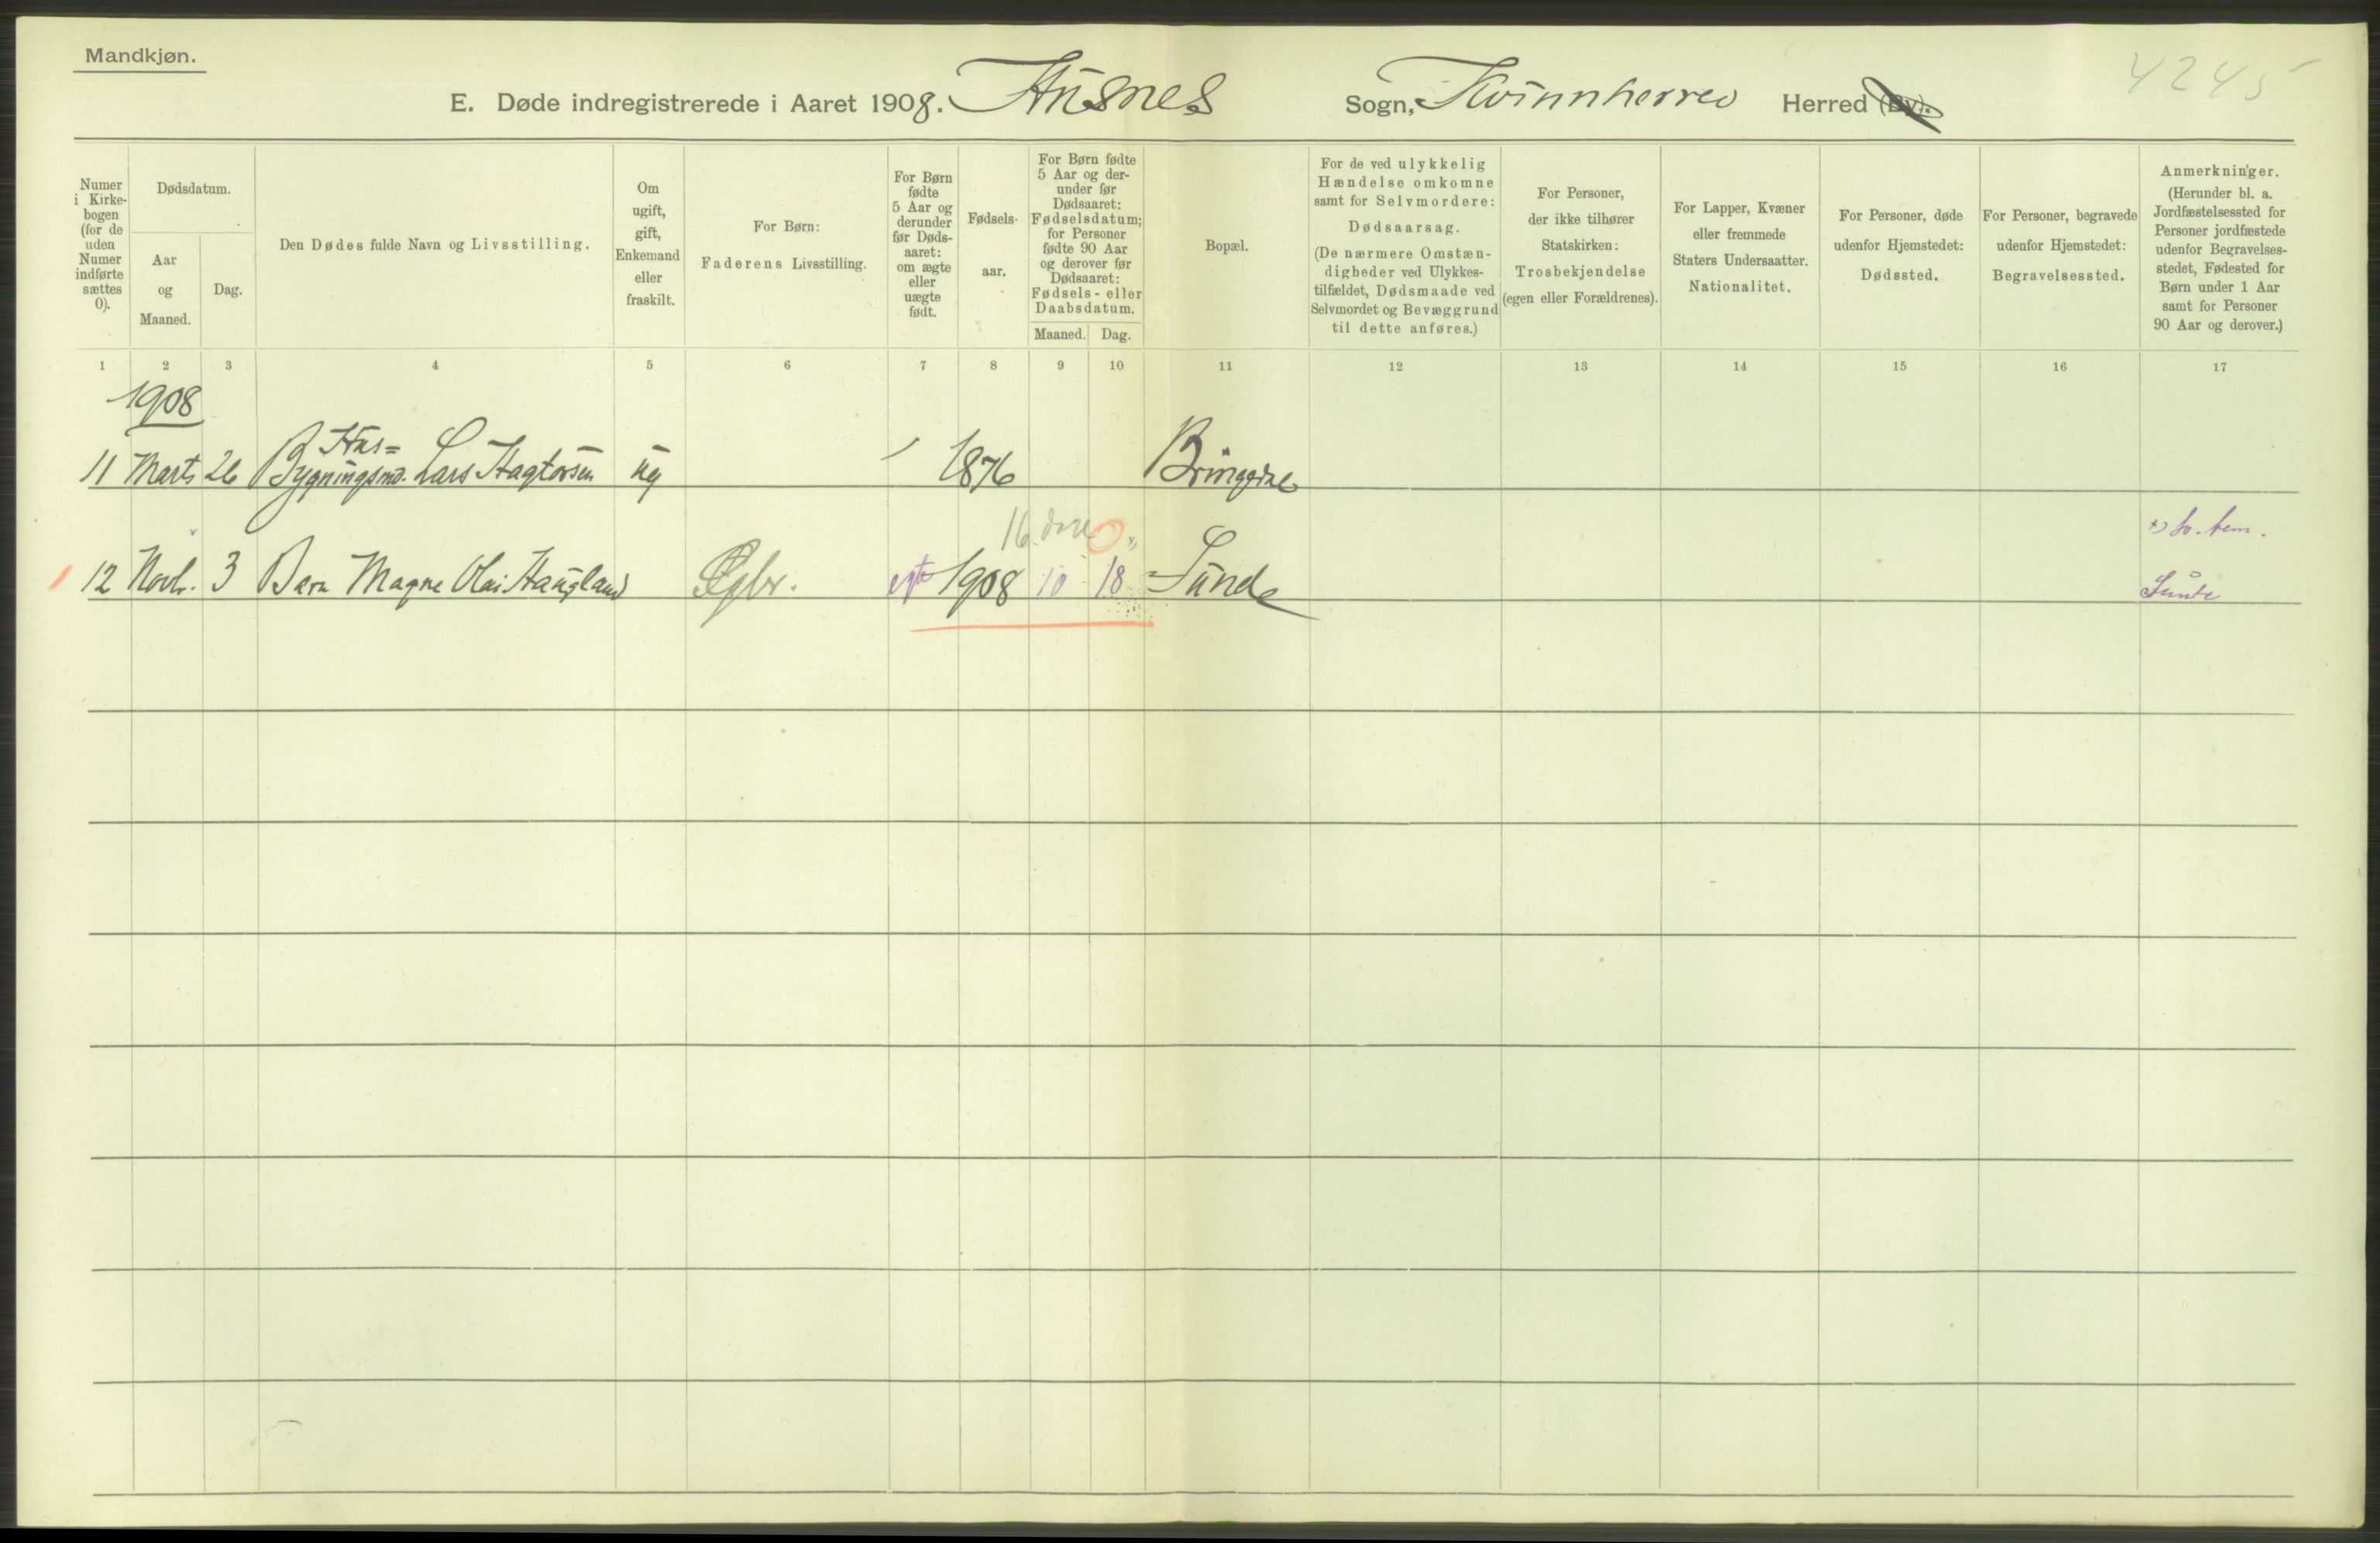 Mandkjøn.
4245
E. Døde indregistrerede i Aaret 1908. Husnes Sogn, Kvinnherred Herred (By).
Numer i Kirke-bogen (for de uden Numer indførte sættes 0).
Dødsdatum.
Aar og Maaned.
Dag.
Den Dødes fulde Navn og Livsstilling.
Om ugift, gift, Enkemand eller fraskilt.
For Børn: Faderens Livsstilling.
For Børn fødte 5 Aar og derunder før Døds-aaret: om ægte eller uægte født.
Fødsels-aar.
For Børn fødte 5 Aar og der-under før Dødsaaret: Fødselsdatum; for Personer fødte 90 Aar og derover før Dødsaaret: Fødsels- eller Daabsdatum.
Maaned. Dag.
Bopæl.
For de ved ulykkelig Hændelse omkomne samt for Selvmordere: Dødsaarsag. (De nærmere Omstæn-digheder ved Ulykkes-tilfældet, Dødsmaade ved Selvmordet og Bevæggrund til dette anføres.)
For Personer, der ikke tilhører Statskirken: Trosbekjendelse (egen eller Forældrenes).
For Lapper, Kvæner eller fremmede Staters Undersaatter. Nationalitet.
For Personer, døde udenfor Hjemstedet: Dødssted.
For Personer, begravede udenfor Hjemstedet: Begravelsessted.
Anmerkninger. (Herunder bl. a. Jordfæstelsessted for Personer jordfæstede udenfor Begravelses-stedet, Fødested for Børn under 1 Aar samt for Personer 90 Aar og derover.)
1 2 3 4 5 6 7 8 9 10 11 12 13 14 15 16 17
1908
Hus=
11 Marts 26 Bygningsmd. Lars Hagtorsen ug 1876
16
12 Novb. 3 Barn Magne Olai Haugland egte 1908 10 18 Sunde
Sunde